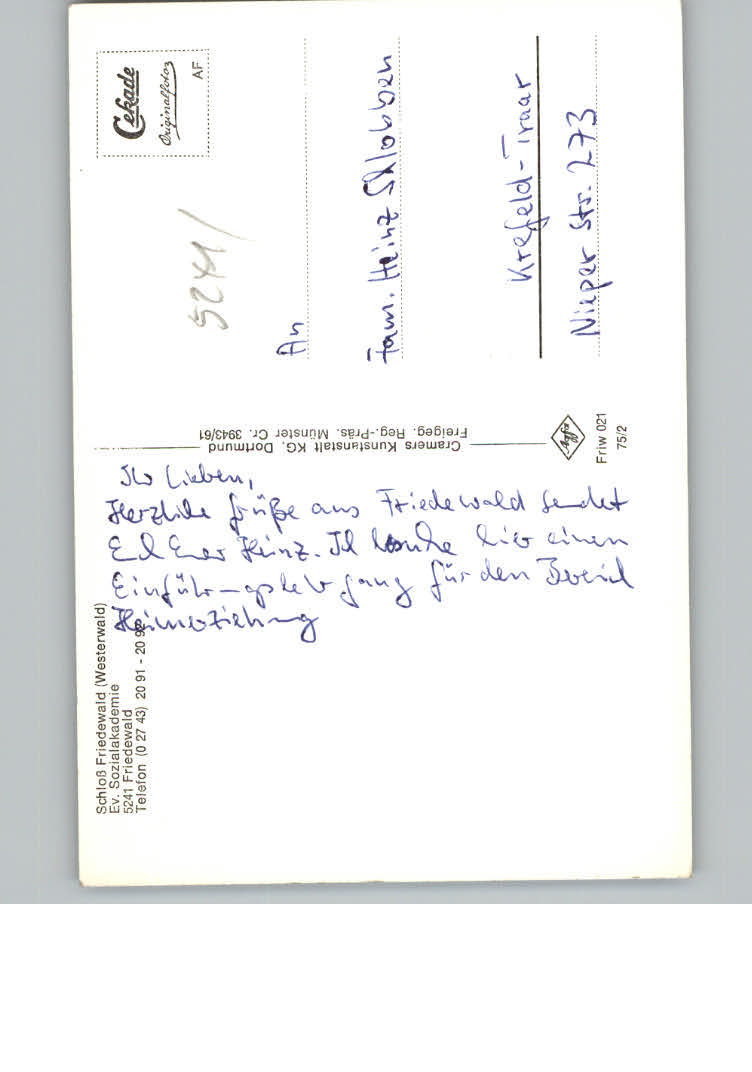 Schloß Friedewald (Westerwald)
Ev. Sozialakademie
5241 Friedewald
Telefon (0 27 43) 20 91 - 20 92
Ihr Lieben,
Herzliche Grüße aus Friedewald sendet
Euch Euer Heinz. Ich besuche hier einen
Einführungslehrgang für den Bereich
Heimerziehung
Cramers Kunstanstalt KG, Dortmund
Freigeg. Reg.-Präs. Münster Cr. 3943/61
Agfa
Friw 021
75/2
Cekade
Originalfotos
AF
5241/
An
Fam. Heinz Schlobben
Krefeld-Traar
Nieper Str. 273